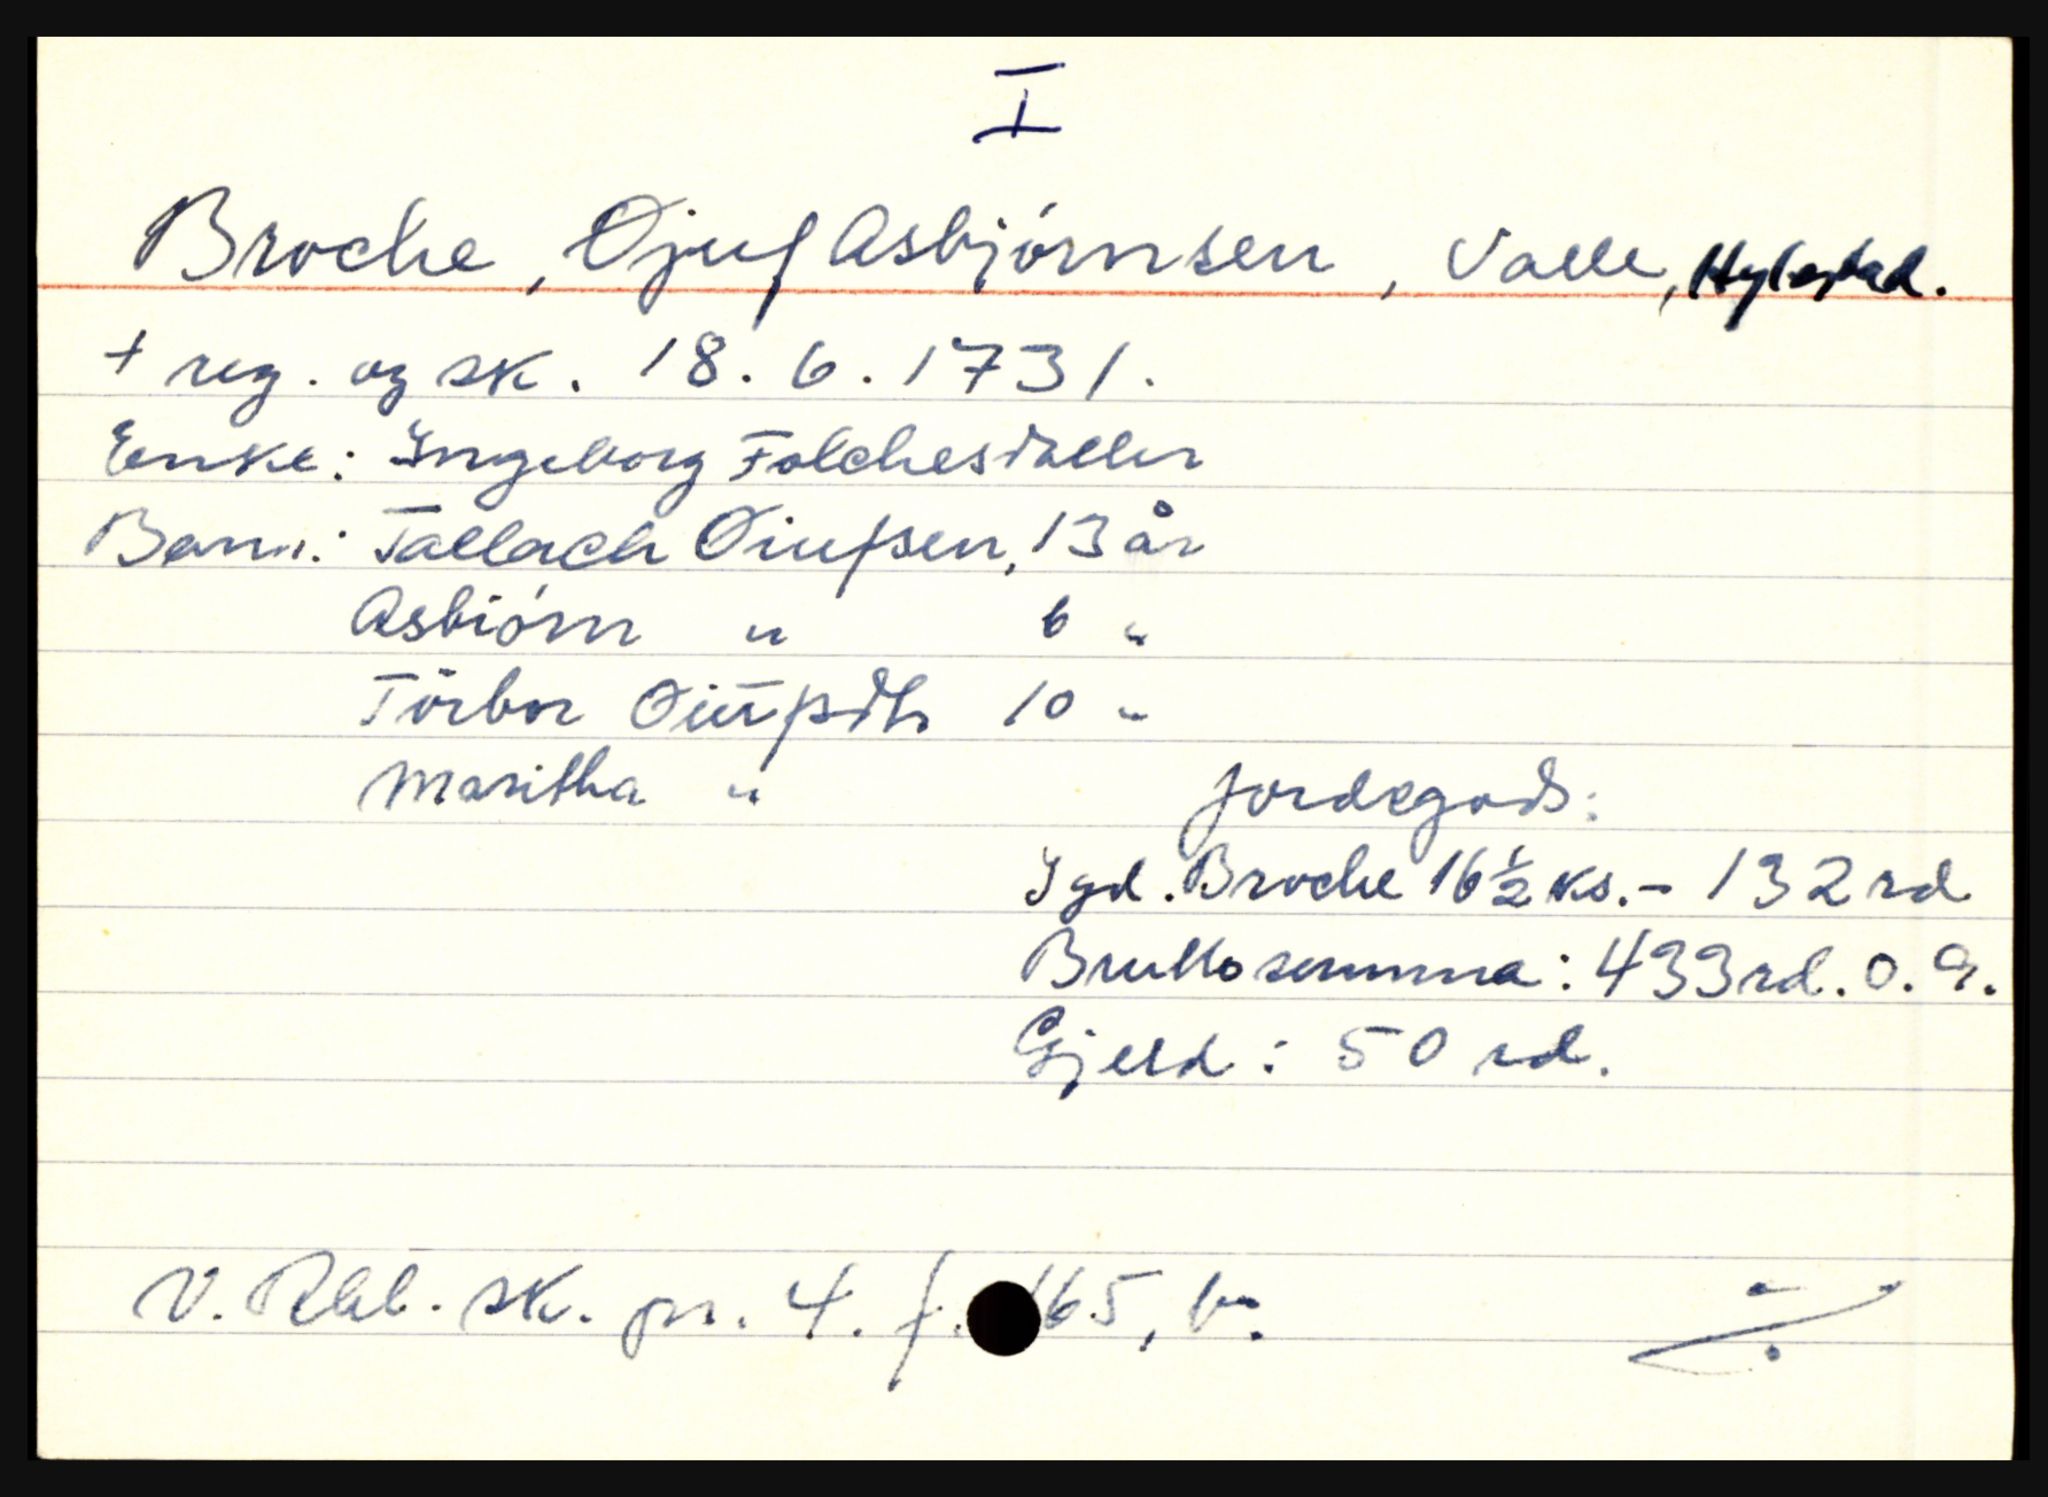 I
Broche, Ojuf Asbjörnsen, Valle, Hylestad.
+ reg. og sk. 18. 6. 1731.
Enke: Ingeborg Folchesdatter
Barn: Tallach Oiufsen, 13 år
Asbiörn " 6 "
Törbor Oiufsdtr 10 "
Maritha "
Jordegods:
I gd. Broche 16½ ks. - 132 rd
Brutto summa: 433 rd. 0. 9.
Gjeld: 50 rd.
V. Rbl. sk. pr. 4. f. 165, b.